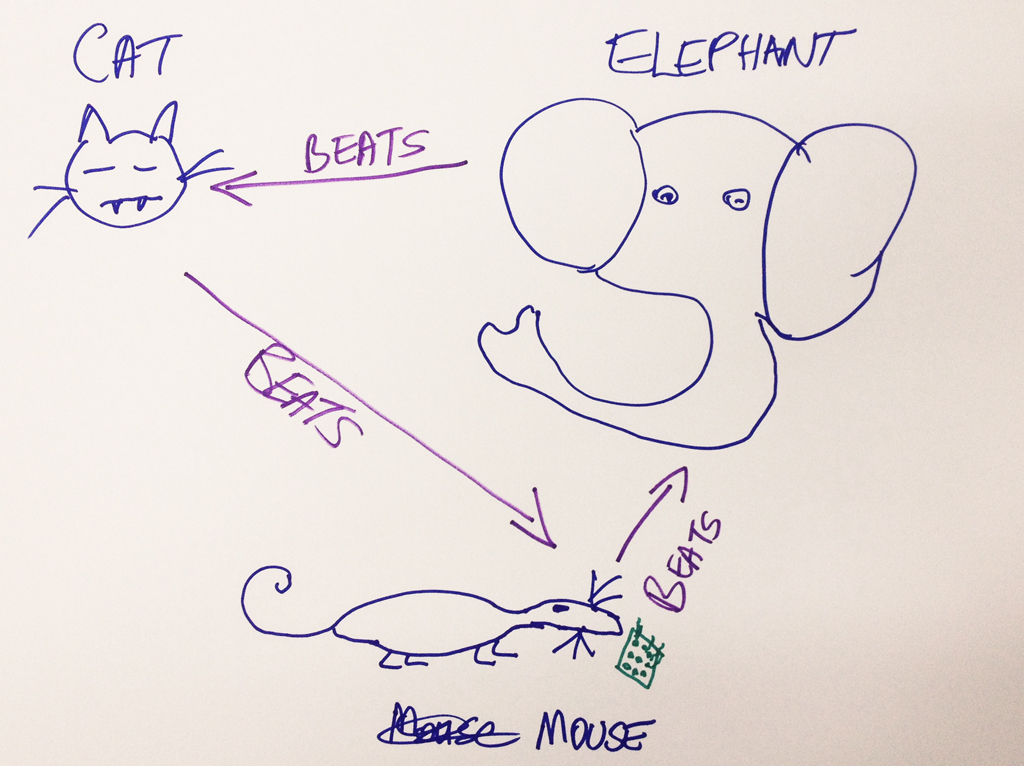 CAT
ELEPHANT
BEATS
BEATS
BEATS
MOUSE